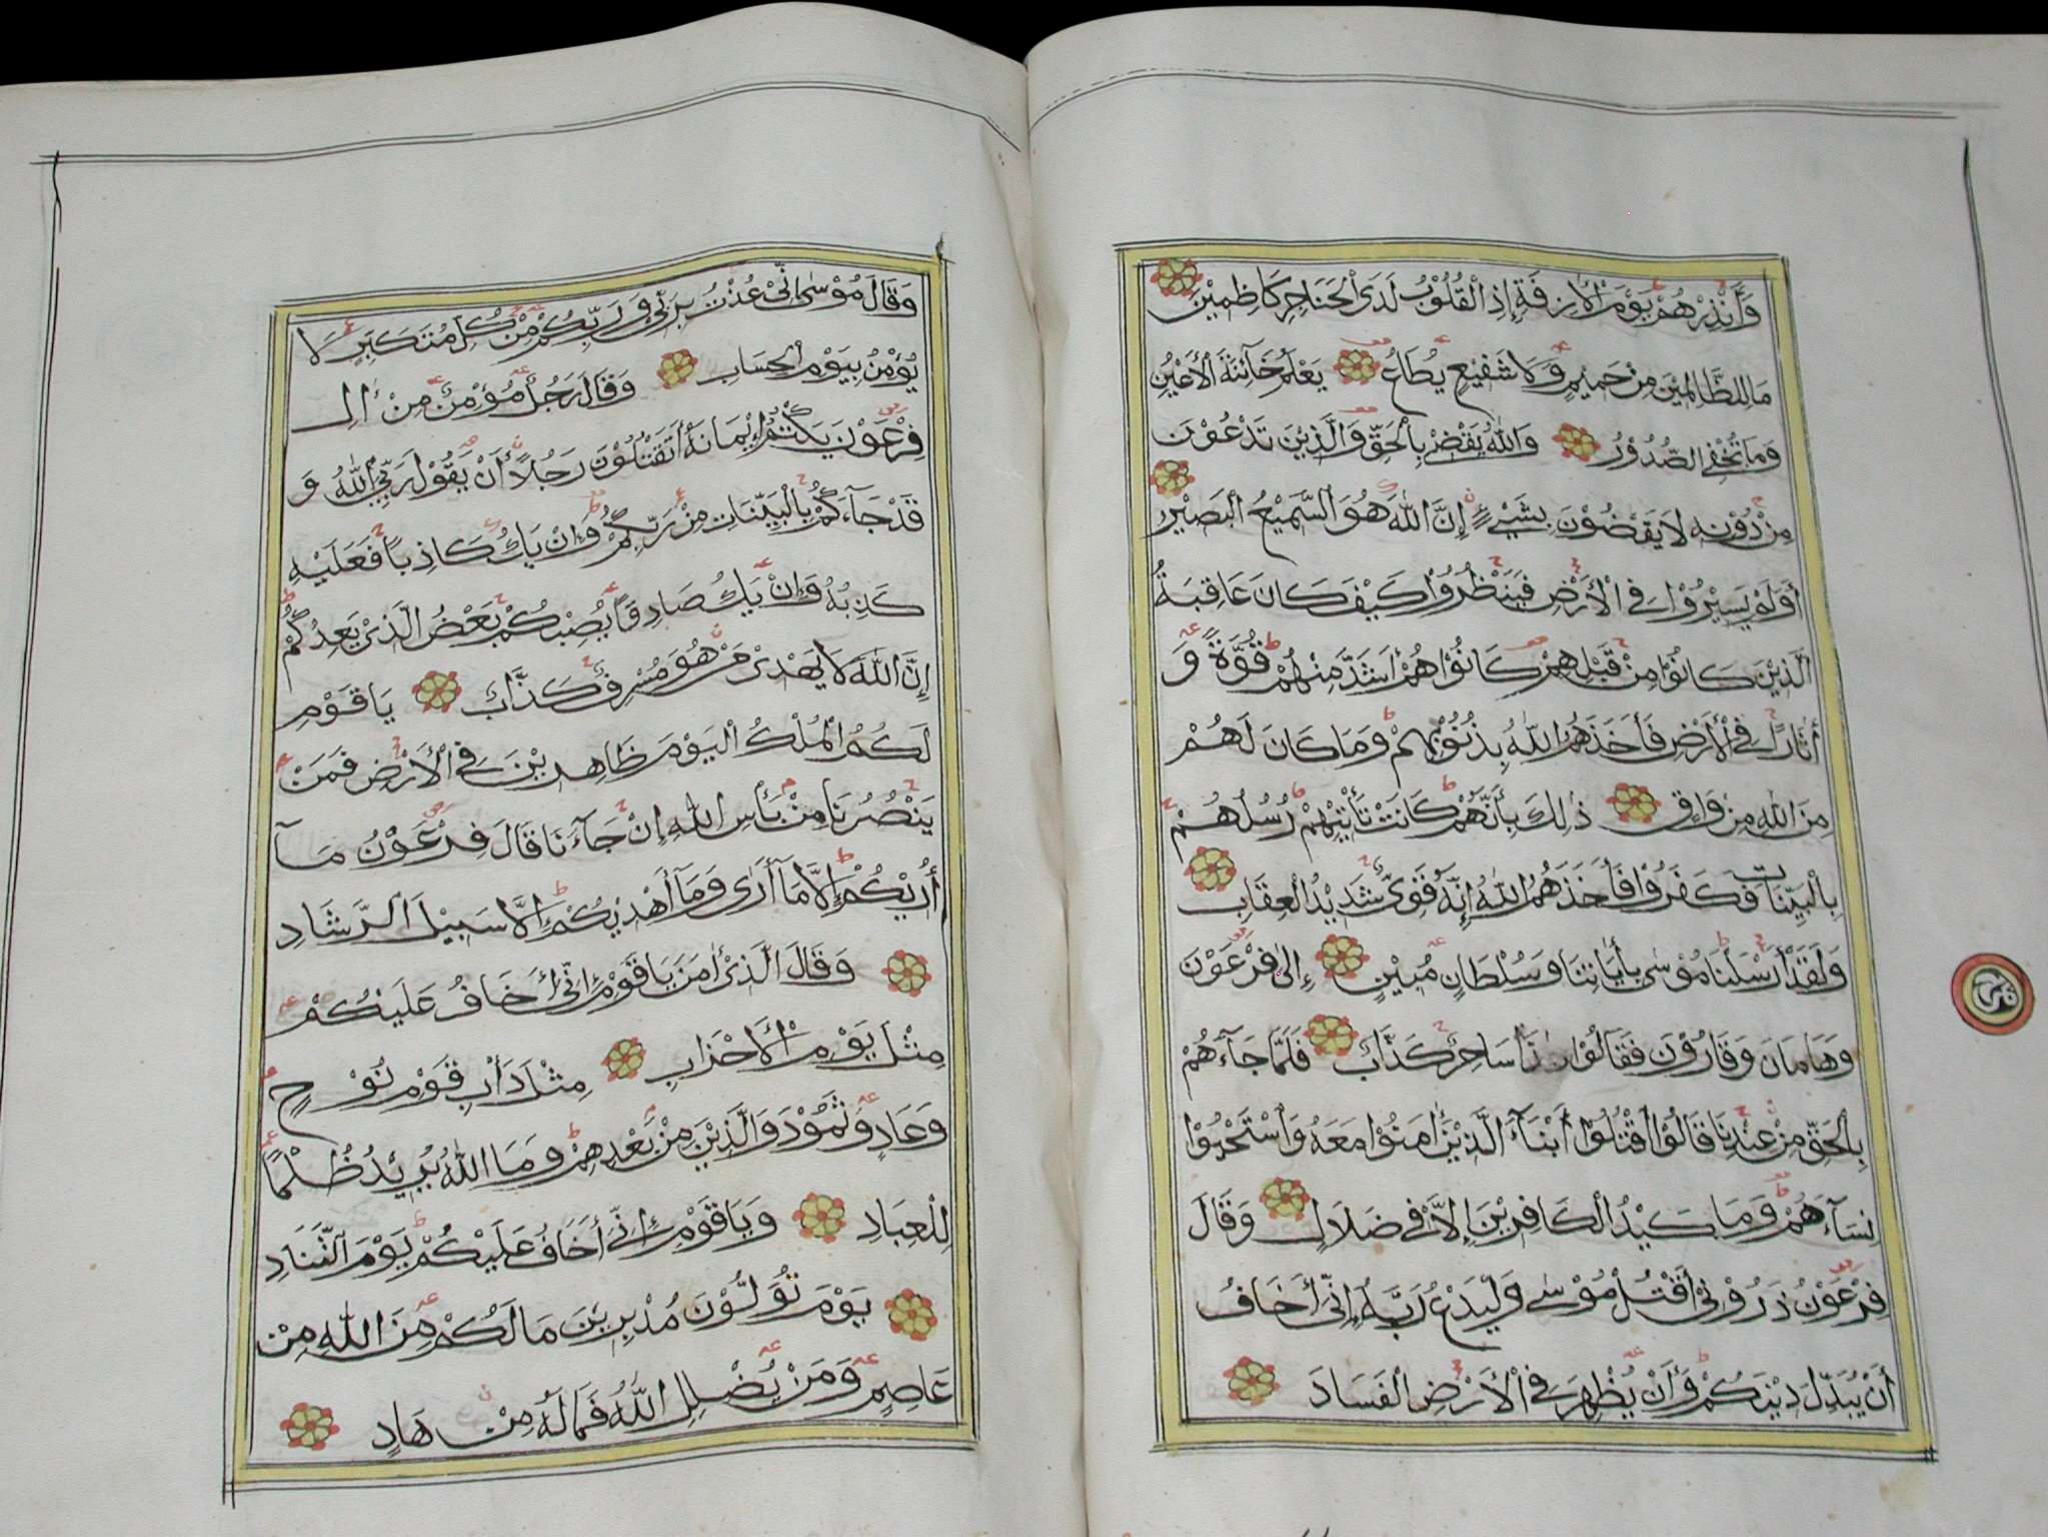 وَأَنْذِرْهُمْ يَوْمَ الْأَزِفَةِ إِذِ الْقُلُوْبُ لَدَى الْحَنَاجِرِ كَاظِمِيْنَ
مَا لِلظَّالِمِيْنَ مِنْ حَمِيْمٍ وَلَا شَفِيْعٍ يُطَاعُ يَعْلَمُ خَآئِنَةَ الْأَعْيُنِ
وَمَا تُخْفِى الصُّدُوْرُ وَاللّٰهُ يَقْضِيْ بِالْحَقِّ وَالَّذِيْنَ تَدْعُوْنَ
مِنْ دُوْنِهِ لَا يَقْضُوْنَ بِشَيْءٍ إِنَّ اللّٰهَ هُوَ السَّمِيْعُ الْبَصِيْرُ
أَوَلَمْ يَسِيْرُوْا فِى الْأَرْضِ فَيَنْظُرُوْا كَيْفَ كَانَ عَاقِبَةُ
الَّذِيْنَ كَانُوْا مِنْ قَبْلِهِمْ كَانُوْا هُمْ أَشَدَّ مِنْهُمْ قُوَّةً وَ
أٰثَارًا فِى الْأَرْضِ فَأَخَذَهُمُ اللّٰهُ بِذُنُوْبِهِمْ وَمَا كَانَ لَهُمْ
مِنَ اللّٰهِ مِنْ وَاقٍ ذٰلِكَ بِأَنَّهُمْ كَانَتْ تَأْتِيْهِمْ رُسُلُهُمْ
بِالْبَيِّنَاتِ فَكَفَرُوْا فَأَخَذَهُمُ اللّٰهُ إِنَّهُ قَوِىٌّ شَدِيْدُ الْعِقَابِ
وَلَقَدْ أَرْسَلْنَا مُوْسٰى بِأٰيَاتِنَا وَسُلْطَانٍ مُبِيْنٍ إِلٰى فِرْعَوْنَ
وَهَامَانَ وَقَارُوْنَ فَقَالُوْا سَاحِرٌ كَذَّابٌ فَلَمَّا جَآءَهُمْ
بِالْحَقِّ مِنْ عِنْدِنَا قَالُوْا اقْتُلُوْا أَبْنَآءَ الَّذِيْنَ أٰمَنُوْا مَعَهُ وَاسْتَحْيُوْا
نِسَآءَهُمْ وَمَا كَيْدُ الْكَافِرِيْنَ إِلَّا فِى ضَلَالٍ وَقَالَ
فِرْعَوْنُ ذَرُوْنِىْ أَقْتُلْ مُوْسٰى وَلْيَدْعُ رَبَّهُ إِنِّى أَخَافُ
أَنْ يُبَدِّلَ دِيْنَكُمْ وَأَنْ يُظْهِرَ فِى الْأَرْضِ الْفَسَادَ
وَقَالَ مُوْسٰى إِنِّىْ عُذْتُ بِرَبِّىْ وَرَبِّكُمْ مِنْ كُلِّ مُتَكَبِّرٍ لَا
يُؤْمِنُ بِيَوْمِ الْحِسَابِ وَقَالَ رَجُلٌ مُؤْمِنٌ مِنْ اٰلِ
فِرْعَوْنَ يَكْتُمُ إِيْمَانَهُ أَتَقْتُلُوْنَ رَجُلًا أَنْ يَقُوْلَ رَبِّىَ اللّٰهُ وَ
قَدْ جَآءَكُمْ بِالْبَيِّنَاتِ مِنْ رَبِّكُمْ وَإِنْ يَكُ كَاذِبًا فَعَلَيْهِ
كَذِبُهُ وَإِنْ يَكُ صَادِقًا يُصِبْكُمْ بَعْضُ الَّذِىْ يَعِدُكُمْ
إِنَّ اللّٰهَ لَا يَهْدِىْ مَنْ هُوَ مُسْرِفٌ كَذَّابٌ يَا قَوْمِ
لَكُمُ الْمُلْكُ الْيَوْمَ ظَاهِرِيْنَ فِى الْأَرْضِ فَمَنْ
يَنْصُرُنَا مِنْ بَأْسِ اللّٰهِ إِنْ جَآءَنَا قَالَ فِرْعَوْنُ مَآ
أُرِيْكُمْ إِلَّا مَآ أَرٰى وَمَآ أَهْدِيْكُمْ إِلَّا سَبِيْلَ الرَّشَادِ
وَقَالَ الَّذِىْ أٰمَنَ يَا قَوْمِ إِنِّىْ أَخَافُ عَلَيْكُمْ
مِثْلَ يَوْمِ الْأَحْزَابِ مِثْلَ دَأْبِ قَوْمِ نُوْحٍ
وَعَادٍ وَثَمُوْدَ وَالَّذِيْنَ مِنْ بَعْدِهِمْ وَمَا اللّٰهُ يُرِيْدُ ظُلْمًا
لِلْعِبَادِ وَيَا قَوْمِ إِنِّىْ أَخَافُ عَلَيْكُمْ يَوْمَ التَّنَادِ
يَوْمَ تُوَلُّوْنَ مُدْبِرِيْنَ مَا لَكُمْ مِنَ اللّٰهِ مِنْ
عَاصِمٍ وَمَنْ يُضْلِلِ اللّٰهُ فَمَا لَهُ مِنْ هَادٍ